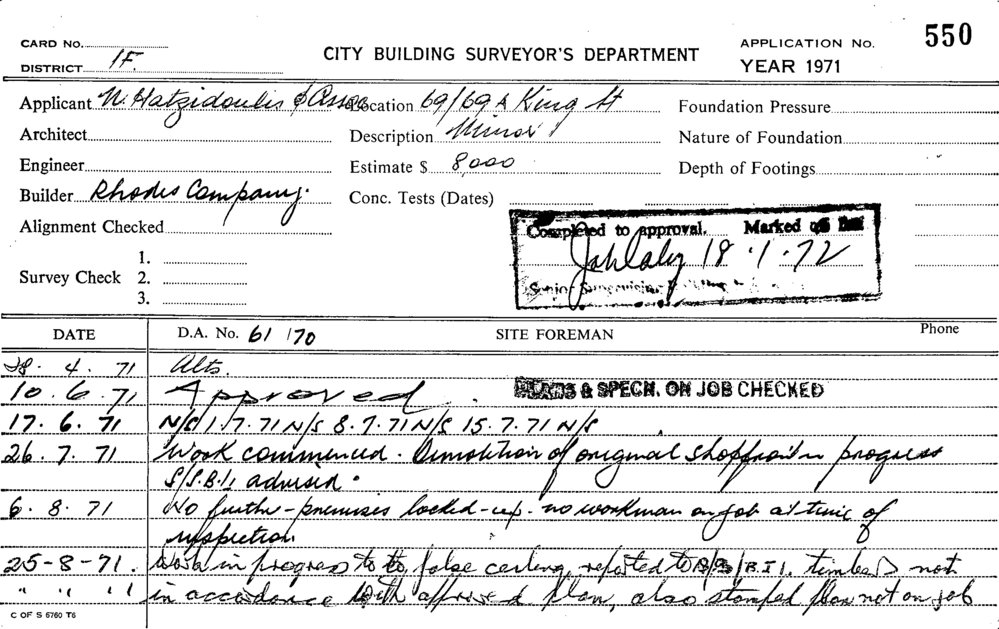 CARD No.
DISTRICT 1F.
CITY BUILDING SURVEYOR'S DEPARTMENT
APPLICATION No. 550
YEAR 1971
Applicant N. Hatzidoulis & Assoc Location 69/69A King St Foundation Pressure
Architect Description Minor Nature of Foundation
Engineer Estimate $ 8,000 Depth of Footings
Builder Rhodes Company. Conc. Tests (Dates)
Alignment Checked
Completed to approval. Marked off
18.1.72
Survey Check 1.
2.
3.
Senior
DATE D.A. No. 61/70 SITE FOREMAN Phone
28. 4. 71 Alts.
10. 6. 71 Approved. PLANS & SPECN. ON JOB CHECKED
17. 6. 71 N/S 1.7.71 N/S 8.7.71 N/S 15.7.71 N/S
26. 7. 71 Work commenced. Demolition of original shopfront in progress
S/S.B.I. advised.
6. 8. 71 No further - premises locked-up - no workman on job at time of
inspection
25-8-71. Work in progress to false ceiling, reported to timbers not
" " " in accordance with approved plan, also stamped plan not on job
C OF S 6760 T6